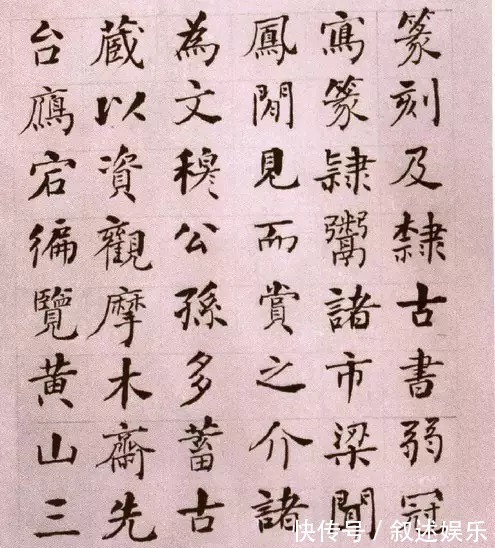 篆刻及隸古書弱冠
寫篆隸鬻諸市梁聞
鳳閒見而賞之介諸
為文穆公孫多蓄古
蔵以資觀摩木齋先
台鴈宕徧覽黃山三
快传号 / 叙述娱乐